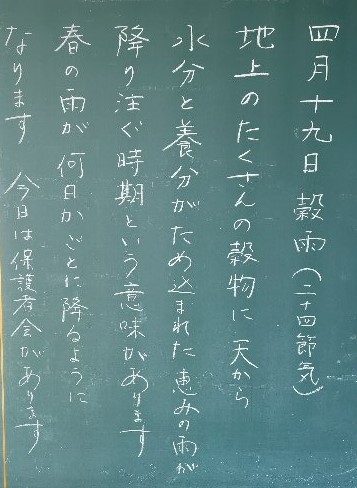 四月十九日 穀雨(二十四節気)
地上のたくさんの穀物に 天から
水分と養分がため込まれた 恵みの雨が
降り注ぐ時期という意味があります
春の雨が 何日かごとに降るように
なります 今日は保護者会があります